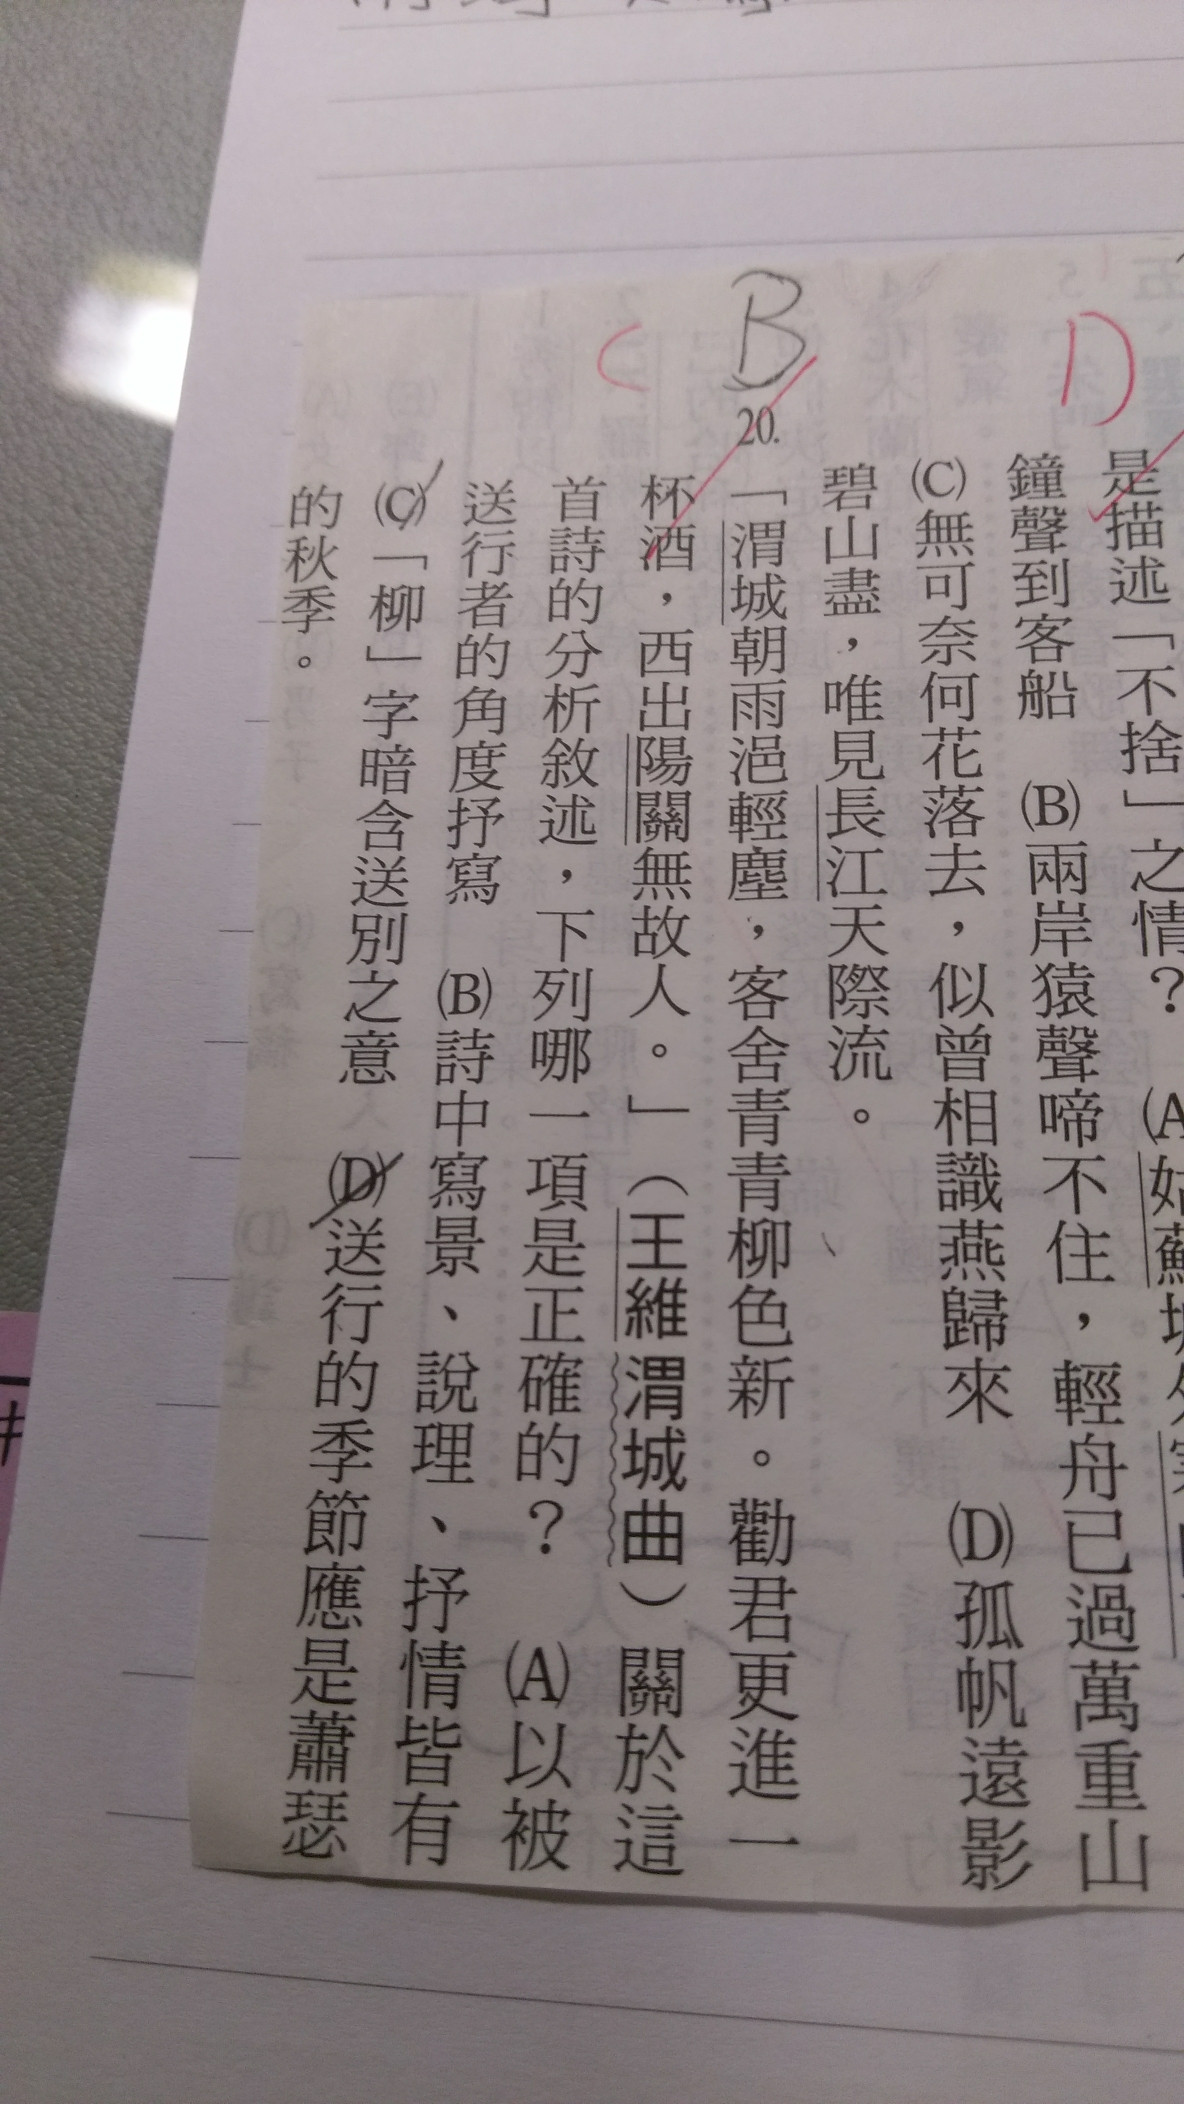 D
是描述「不捨」之情？
鐘聲到客船　(B)兩岸猿聲啼不住，輕舟已過萬重山
(C)無可奈何花落去，似曾相識燕歸來　(D)孤帆遠影
碧山盡，唯見長江天際流。
B
C
20.
「渭城朝雨浥輕塵，客舍青青柳色新。勸君更進一
杯酒，西出陽關無故人。」（王維渭城曲）關於這
首詩的分析敘述，下列哪一項是正確的？　(A)以被
送行者的角度抒寫　(B)詩中寫景、說理、抒情皆有
(C)「柳」字暗含送別之意　(D)送行的季節應是蕭瑟
的秋季。